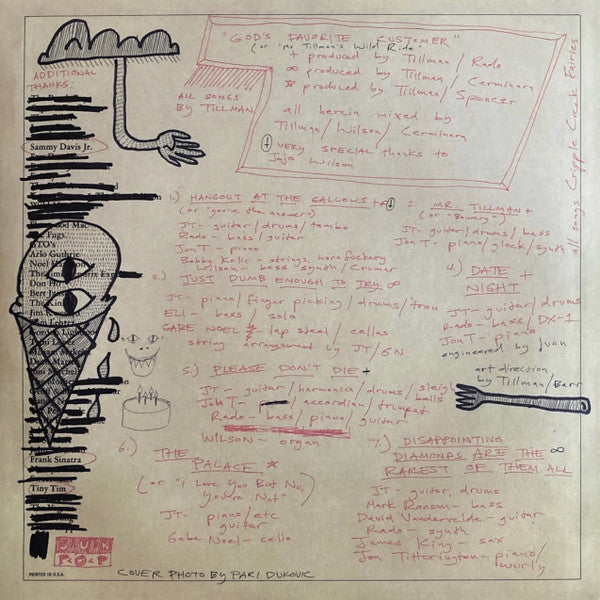 "GOD'S FAVORITE KUSTOMER"
(or "Mr. Tillman's Wild Ride")
+ produced by Tillman/Rado
∞ produced by Tillman/Cerminara
* produced by Tillman/Spencer
all herein mixed by
Tillman/Wilson/Cerminara
VERY SPECIAL thanks to
JoJo Wilson
all songs Cripple Creek Fairies
ADDITIONAL
THANKS:
ALL SONGS
BY TILLMAN
Sammy Davis Jr.
Fugs
GTO's
Arlo Guthrie
Noel
Don Ho
Bert
Jim
Frank Sinatra
Tiny Tim
1.) HANGOUT AT THE GALLOWS +
(or "you're the answer")
JT- guitar/drums/tambo
Rado- bass/guitar
JonT- piano
Bobby Krlic- strings, horn fuckery
Wilson- bass synth/Crumar
2. MR. TILLMAN +
(or "Bowery")
JT- guitar/drums/bass
JonT- piano/glock/synth
3.) JUST DUMB ENOUGH TO TRY ∞
JT- piano/finger picking/drums/tron
ELI- bass/solo
GABE NOEL- lap steel/cellos
string arrangement by JT/GN
4.) DATE +
NIGHT
JT- guitar/drums
Rado- bass/DX-1
JonT- piano
engineered by Juan
art direction
by Tillman/Barr
5.) PLEASE DON'T DIE +
JT- guitar/harmonica/drums/sleigh bells
JonT- accordian/trumpet
Rado- bass/piano/guitar
WILSON- organ
6.) THE
PALACE *
(or "I Love You But No,
You're Not")
JT- piano/etc
guitar
Gabe Noel- cello
7.) DISAPPOINTING
DIAMONDS ARE THE ∞
RAREST OF THEM ALL
JT- guitar, drums
Mark Ronson- bass
David Vandervelde- guitar
Rado- synth
James King- sax
Jon Titterington- piano/
wurly
SUB
POP
PRINTED IN U.S.A.
COVER PHOTO BY PARI DUKOVIC